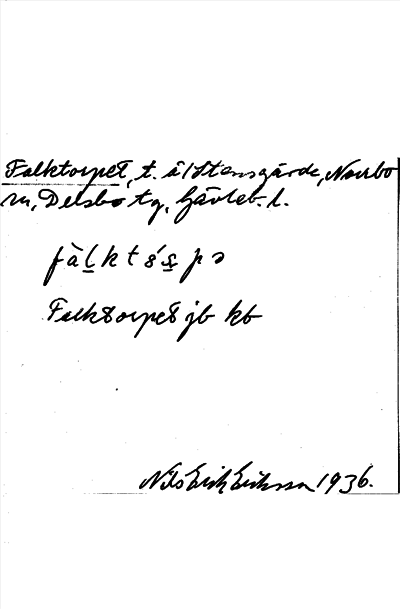 Falktorpet, t. å Stensgärde, Norrbo
sn, Delsbo tg, Gävleb. l.
fàl̠kt s̠pə
Falktorpet jb kb
Nils Erik Eriksson 1936.